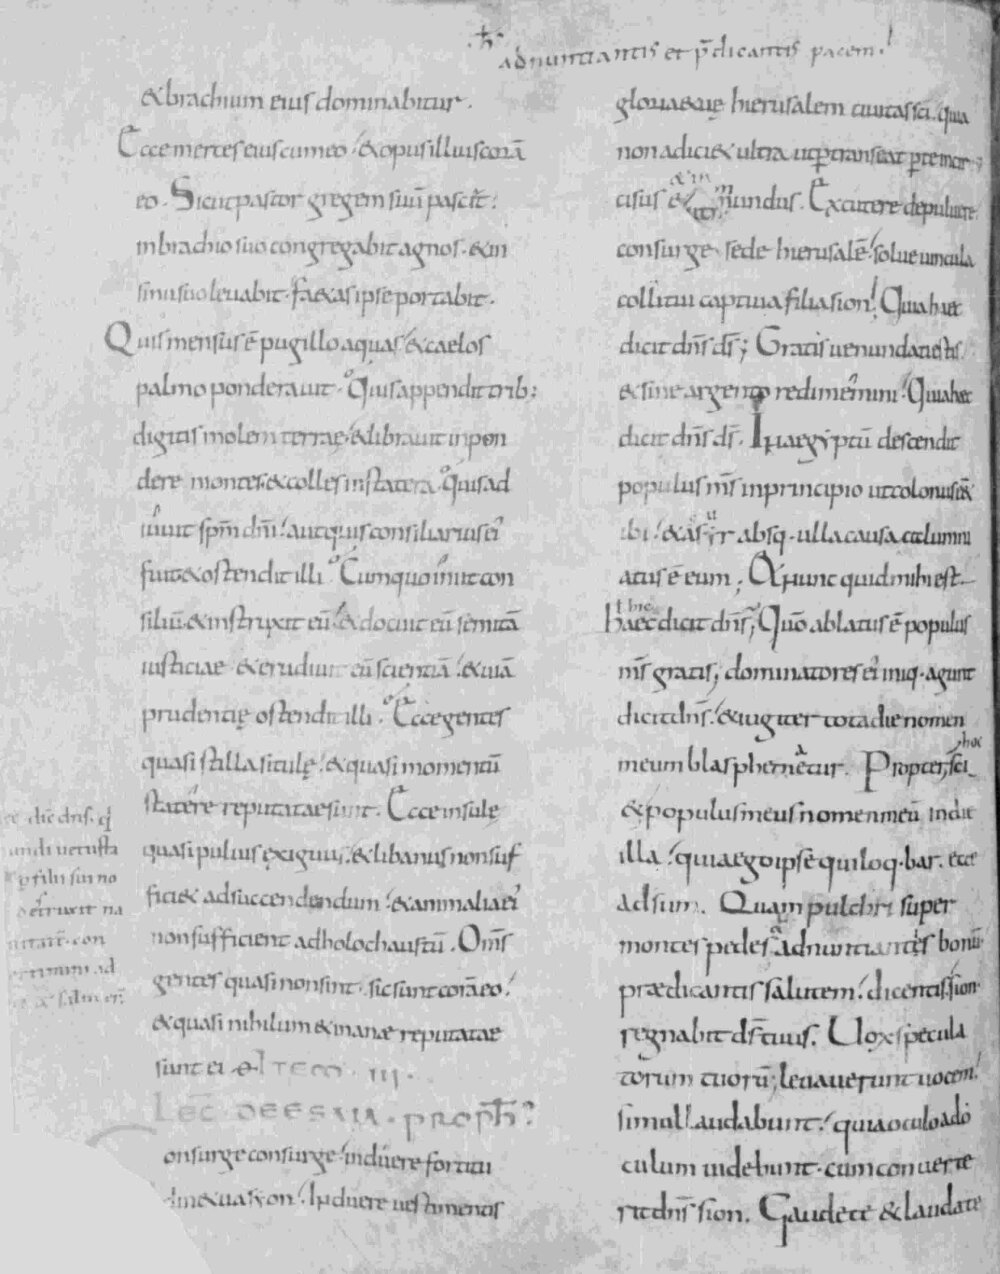 adnuntiantis et p̄dicantis pacem
& brachium eius dominabitur.
Ecce merces eius cum eo & opus illius corā
eo. Sicut pastor gregem suū pascit
in brachio suo congregabit agnos. & in
sinu suo levabit. f&as ipse portabit.
Quis mensus ē pugillo aquas & caelos
palmo ponderavit. Quis appendit trib:
digitis molem terrę & libravit in pon
dere montes & colles in statera. quis ad
iuvit spm̄ dnī aut quis consiliarius ei
fuit & ostendit illi. Cum quo iniit con
siliū & instruxit eū & docuit eū semitā
iusticiae & erudivit eū scientiā & viā
prudentię ostendit illi. Ecce gentes
quasi stilla situlę & quasi momentū
staterę reputatae sunt. Ecce insulę
quasi pulvis exiguus & libanus non suf
fici& ad succendendum & animalia ei
non sufficient ad holochaustū. Om̄s
gentes quasi non sint. sic sunt corā eo
& quasi nihilum & inanae reputatae
sunt ei. ITEM. III.
LEC DE ESAIA. PROPH
onsurge consurge induere fortitu
dine tua syon. Induere vestimentis
ce dic dn̄s. q
andi vetusta
filii sui no
na
con
ad
gloriae tuę hierusalem civitas sc̄i. quia
non adici& ultra ut p transeat p te incir
cisus & in mundus. Excutere de pulvere
consurge sede hierusalē. solve vincula
colli tui captiva filia sion. Quia haec
dicit dn̄s ds̄; Gratis venundati estis
& sine argento redimemini. Quia haec
dicit dn̄s ds̄. In aegyptū descendit
populus m̄s in principio ut colonus ēet
ibi. & asur absq. ulla causa calumni
atus ē eum; Et nunc quid mihi est
hic
haec dicit dn̄s; Quō ablatus ē populus
m̄s gratis; dominatores ei iniq. agunt
dicit dn̄s. & iugiter tota die nomen
meum blasphematur. Propter hoc sci
& populus meus nomen meū in die
illa. quia ego ipse qui loq.bar. ecce
adsum. Quam pulchri super
montes pedes adnuntiantis bonū
prædicantis salutem. dicentis sion
regnabit ds̄ tuus. Vox specula
torum tuorū; levaverunt vocem
simul laudabunt. quia oculo ad o
culum videbunt. cum converte
rit dn̄s sion. Gaudete & laudate